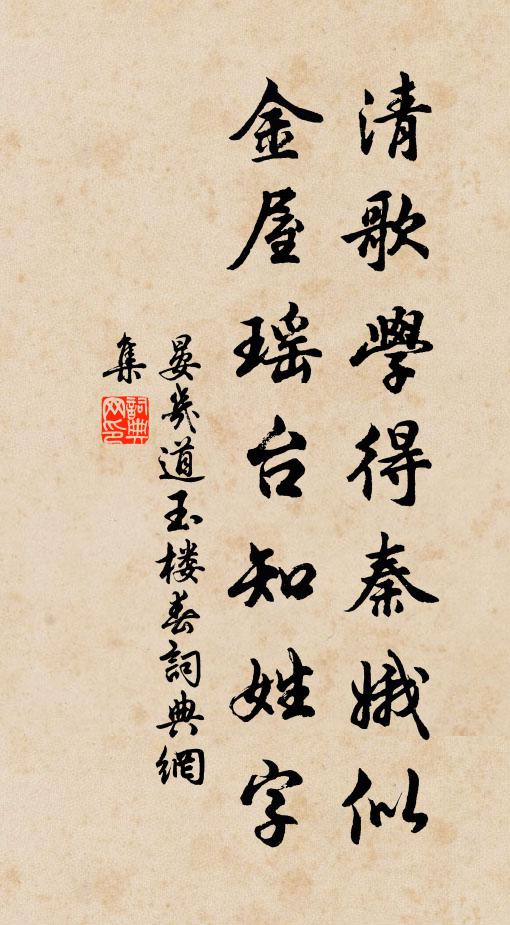 清歌學得秦娥似
金屋瑶台知姓字
晏幾道玉楼春詞典網
集
詞典
网印